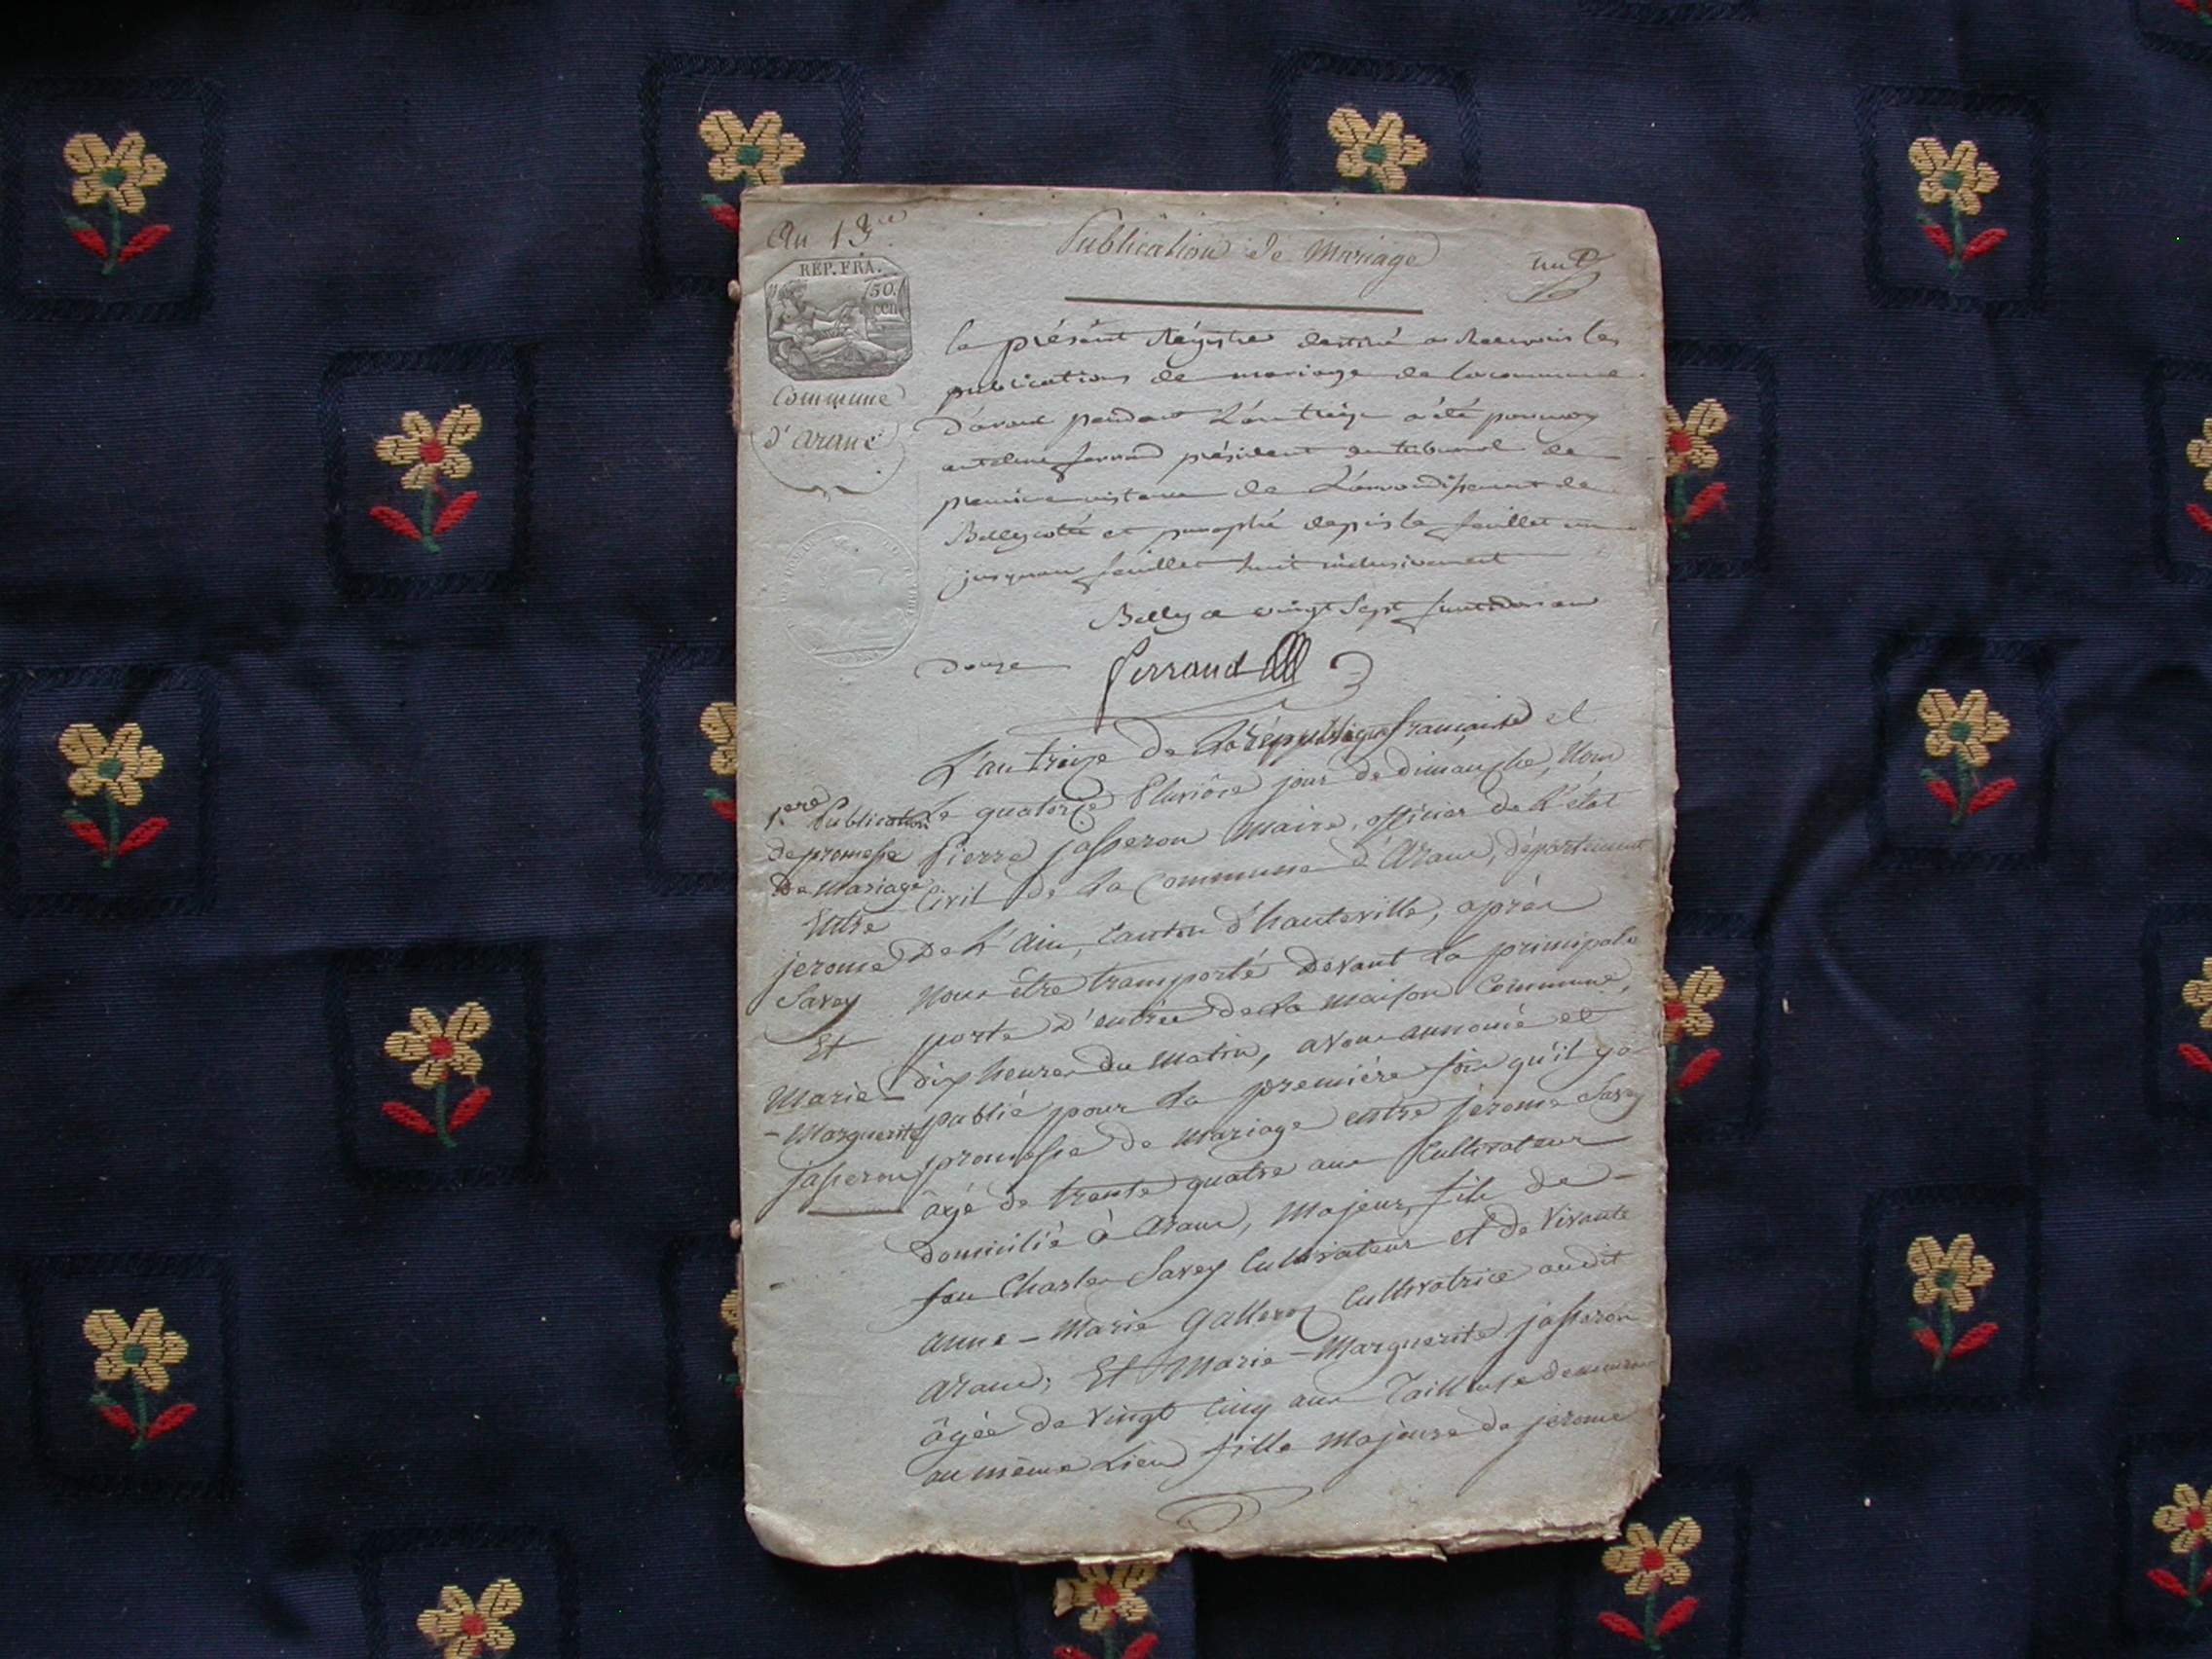 An 13e
Publication de Mariage
un
REP. FRA.
50
cen
Commune
d'aranc
le présent Régistre destiné a Recevoir les
publications de mariage de la commune
d'aranc pendant L'an treize a été par nous
anthelme ferrand président du tribunal de
premiere instance de L'arrondissement de
Belley cotté et paraphé depuis le feuillet un
jusqu'au feuillet huit inclusivement
Belley ce vingt sept fructidor an
douze Ferrand
L'an treize De La république française et
Le quatorze Pluviôse jour de dimanche, Nous
Pierre jasseron Maire, officier de L'état
Civil de La Commune d'Aranc, département
De L'Ain, Canton d'hauteville, après
Nous être transporté Devant La principale
porte D'entrée de La Maison Commune,
dix heures du Matin, avons annoncé et
publié pour La première fois qu'il y a
promesse de Mariage entre jérome Savey
âgé de trente quatre ans Cultivateur
Domicilié à Aranc, Majeur, fils de
feu Charles Savey Cultivateur et de Vivante
Anne-Marie Galleron Cultivatrice audit
Aranc; Et Marie-Marguerite jasseron
âgée de Vingt Cinq ans Tailleuse demeurant
au même Lieu fille Majeure de jerome
1ere Publication
de promesse
De Mariage
Entre
jerome
Savey
Et
Marie-
-Marguerite
jasseron